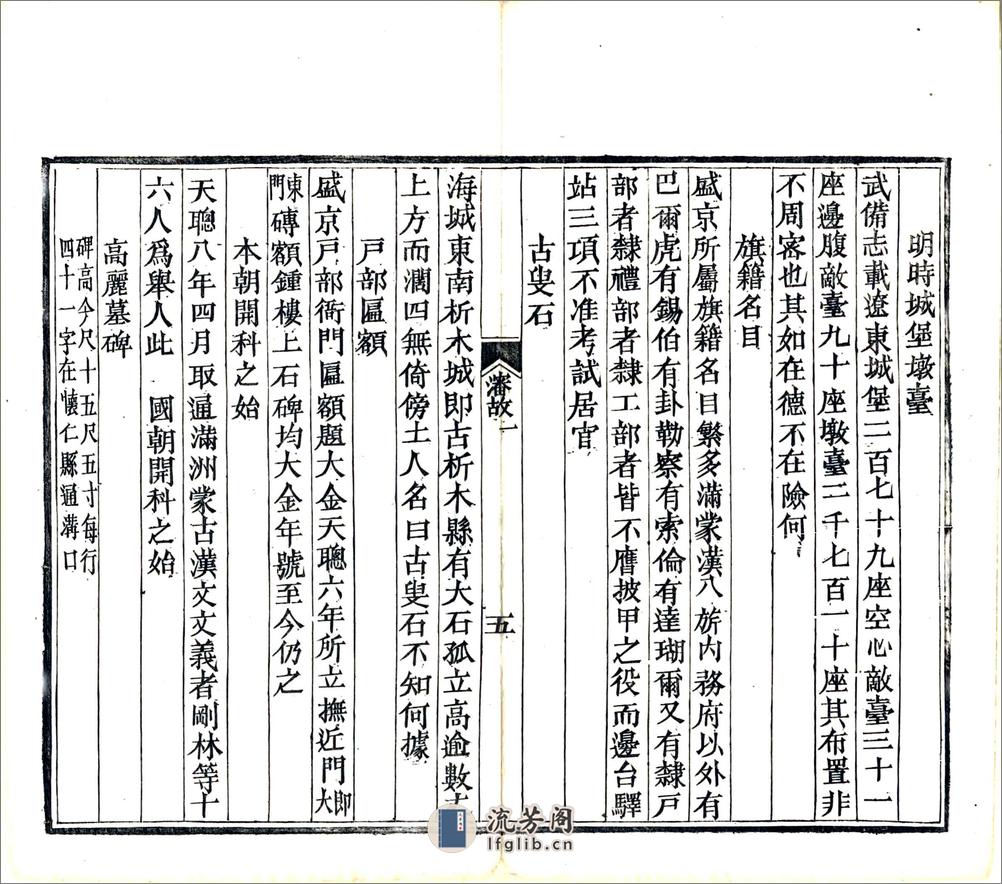 明時城堡墩臺
武備志載遼東城堡二百七十九座空心敵臺三十一
座邊腹敵臺九十座墩臺二千七百一十座其布置非
不周宻也其如在德不在險何
旗籍名目
盛京所屬旗籍名目繁多滿蒙漢八旂內務府以外有
巴爾虎有錫伯有卦勒察有索倫有達瑚爾又有隸戸
部者隸禮部者隸工部者皆不膺披甲之役而邊台驛
站三項不准考試居官
古叟石
瀋故一
五
海城東南析木城即古析木縣有大石孤立高逾數丈
上方而濶四無倚傍土人名曰古叟石不知何據
戸部匾額
盛京戸部衙門匾額題大金天聰六年所立撫近門即大
東門磚額鍾樓上石碑均大金年號至今仍之
本朝開科之始
天聰八年四月取通滿洲蒙古漢文文義者剛林等十
六人爲舉人此 國朝開科之始
高麗墓碑
碑高今尺十五尺五寸每行
四十一字在懷仁縣通溝口
流芳阁
lfglib.cn